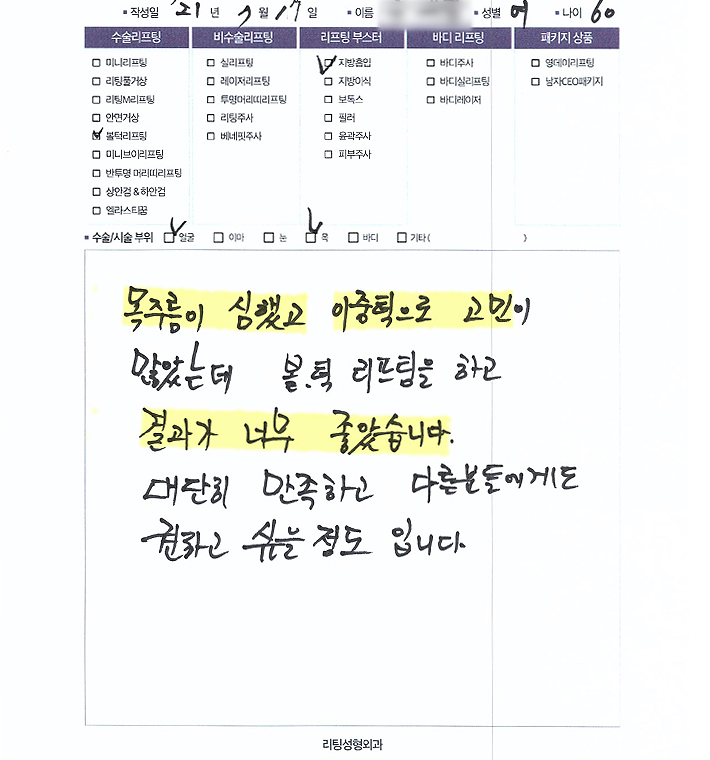 작성일 '21 년 7 월 17 일 이름 성별 여 나이 60
수술리프팅 비수술리프팅 리프팅 부스터 바디 리프팅 패키지 상품
미니리프팅 실리프팅 지방흡입 바디주사 영데이리프팅
리팅풀거상 레이저리프팅 지방이식 바디실리프팅 남자CEO패키지
리팅M리프팅 투명머리띠리프팅 보톡스 바디레이저
안면거상 리팅주사 필러
볼턱리프팅 베네핏주사 윤곽주사
미니브이리프팅 피부주사
반투명 머리띠리프팅
상안검 & 하안검
엘라스티꿈
수술/시술 부위 얼굴 이마 눈 목 바디 기타 ( )
목주름이 심했고 이중턱으로 고민이
많았는데 볼.턱 리프팅을 하고
결과가 너무 좋았습니다.
대단히 만족하고 다른분들에게도
권하고 싶을 정도 입니다.
리팅성형외과